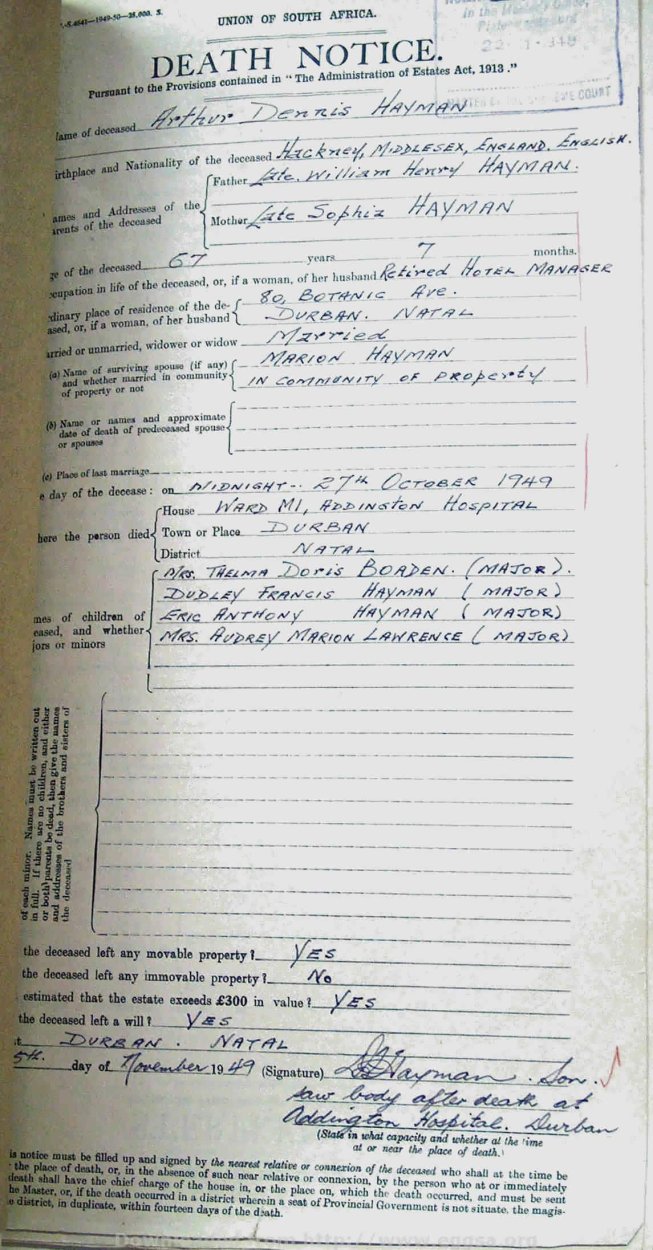 -S.4641—1949-50—25,000. S.
UNION OF SOUTH AFRICA.
DEATH NOTICE.
Pursuant to the Provisions contained in "The Administration of Estates Act, 1913."
ame of deceased Arthur Dennis HAYMAN
irthplace and Nationality of the deceased Hackney, MIDDLESEX, ENGLAND. ENGLISH.
ames and Addresses of the
arents of the deceased
Father Late. William Henry HAYMAN.
Mother Late Sophia HAYMAN
ge of the deceased 67 years 7 months.
ccupation in life of the deceased, or, if a woman, of her husband Retired HOTEL MANAGER
dinary place of residence of the de-
ased, or, if a woman, of her husband
80, BOTANIC AVE.
DURBAN. NATAL
arried or unmarried, widower or widow Married
(a) Name of surviving spouse (if any)
and whether married in community
of property or not
MARION HAYMAN
IN COMMUNITY OF PROPERTY
(b) Name or names and approximate
date of death of predeceased spouse
or spouses
(c) Place of last marriage
e day of the decease: on MIDNIGHT-. 27th OCTOBER 1949
here the person died
House WARD M1, ADDINGTON HOSPITAL
Town or Place DURBAN
District NATAL
mes of children of
eased, and whether
jors or minors
MRS. THELMA DORIS BOADEN. (MAJOR).
DUDLEY FRANCIS HAYMAN (MAJOR)
ERIC ANTHONY HAYMAN (MAJOR)
MRS. AUDREY MARION LAWRENCE (MAJOR)
of each minor. Names must be written out
in full. If there are no children, and either
or both parents be dead, then give the names
and addresses of the brothers and sisters of
the deceased
the deceased left any movable property? YES
the deceased left any immovable property? No
estimated that the estate exceeds £300 in value? YES
the deceased left a will? YES
t DURBAN. NATAL
5th. day of November 1949 (Signature) Hayman. Son.
saw body after death at
Addington Hospital. Durban
(State in what capacity and whether at the time
at or near the place of death.)
is notice must be filled up and signed by the nearest relative or connexion of the deceased who shall at the time be
the place of death, or, in the absence of such near relative or connexion, by the person who at or immediately
death shall have the chief charge of the house in, or the place on, which the death occurred, and must be sent
he Master, or, if the death occurred in a district wherein a seat of Provincial Government is not situate, the magis-
e district, in duplicate, within fourteen days of the death.